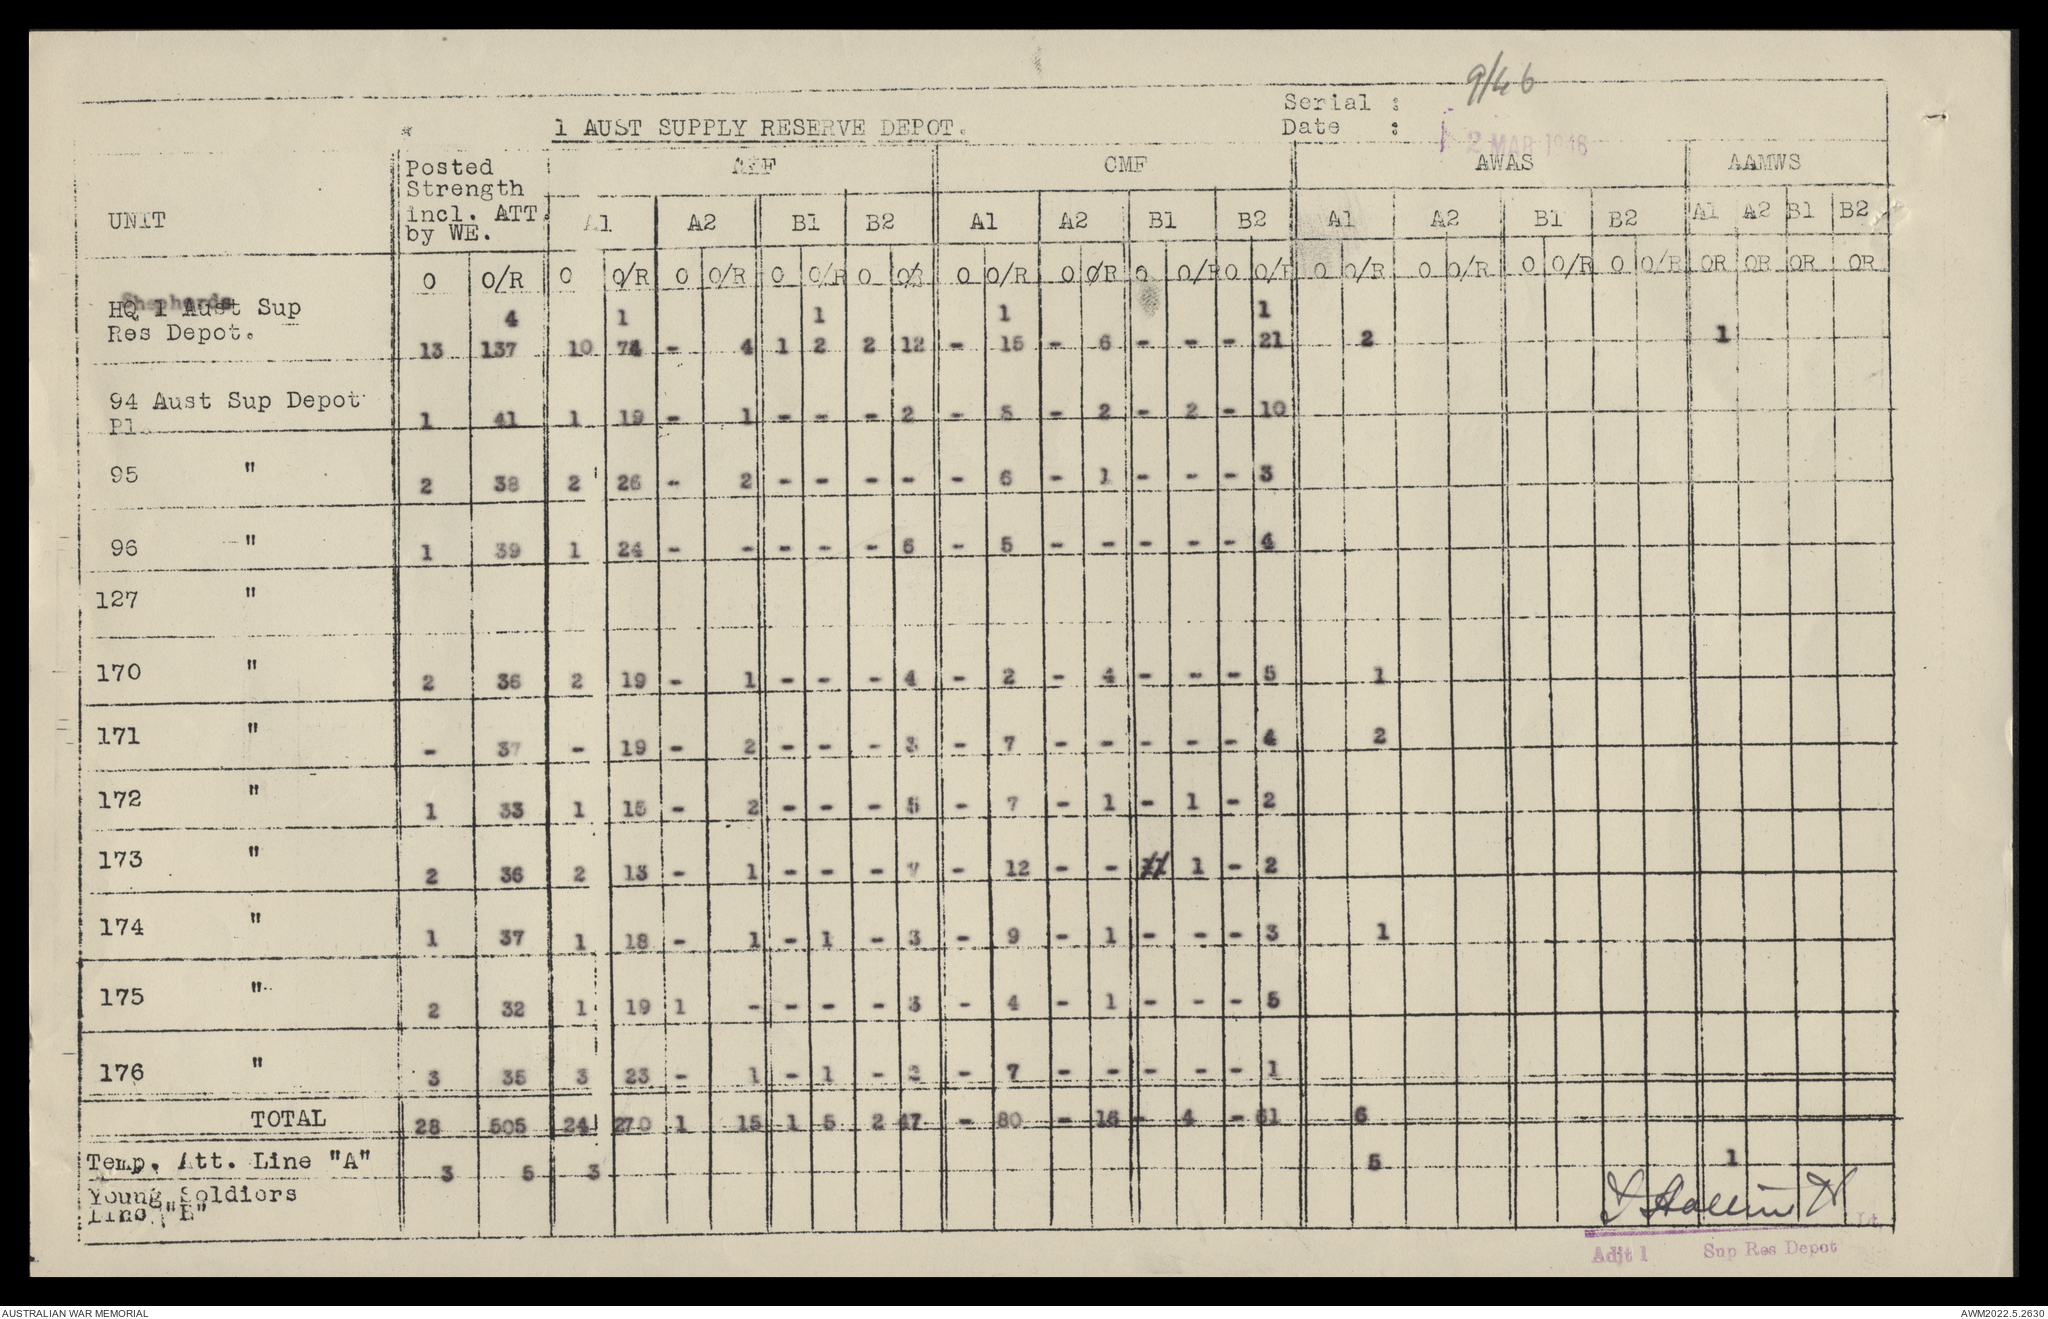 9/46
Serial :
1 AUST SUPPLY RESERVE DEPOT.
Date :
2 MAR 1946
UNIT
Posted Strength incl. ATT. by WE.
AIF CMF AWAS AAMWS
A1 A2 B1 B2 A1 A2 B1 B2 A1 A2 B1 B2 A1 A2 B1 B2
O O/R O O/R O O/R O O/R O O/R O O/R O O/R O O/R O O/R O O/R O O/R O O/R O O/R OR OR OR OR
Shepherds 4 1 1 1 1
HQ 1 Aust Sup
Res Depot. 13 137 10 74 - 4 1 2 2 12 - 15 - 6 - - - 21 2 1
94 Aust Sup Depot
Pl 1 41 1 19 - 1 - - - 2 - 5 - 2 - 2 - 10
95 " 2 38 2 26 - 2 - - - - - 6 - 1 - - - 3
96 " 1 39 1 24 - - - - - 6 - 5 - - - - - 4
127 "
170 " 2 36 2 19 - 1 - - - 4 - 2 - 4 - - - 5 1
171 " - 37 - 19 - 2 - - - 3 - 7 - - - - - 4 2
172 " 1 33 1 15 - 2 - - - 5 - 7 - 1 - 1 - 2
173 " 2 36 2 13 - 1 - - - 7 - 12 - - 1 - 2
174 " 1 37 1 18 - 1 - 1 - 3 - 9 - 1 - - - 3 1
175 " 2 32 1 19 1 - - - - 3 - 4 - 1 - - - 5
176 " 3 35 3 23 - 1 - 1 - 2 - 7 - - - - - 1
TOTAL 28 505 24 270 1 15 1 5 2 47 - 80 - 16 - 4 - 61 6
Temp. Att. Line "A" 3 5 3 5 1
Young Soldiors
Line "B"
Lt.
Adjt 1 Sup Res Depot
AUSTRALIAN WAR MEMORIAL
AWM2022.5.2630